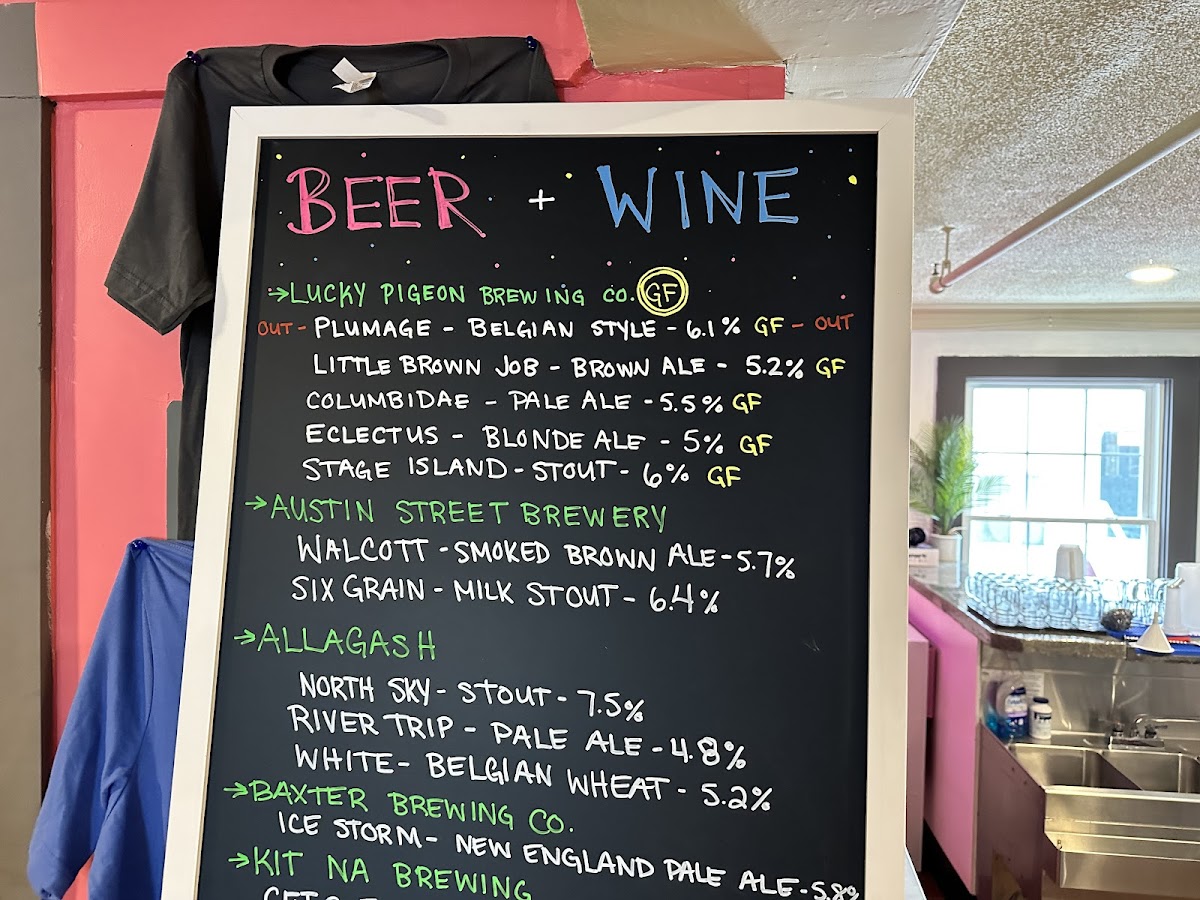 BEER + WINE
→LUCKY PIGEON BREWING CO. GF
OUT - PLUMAGE - BELGIAN STYLE - 6.1% GF - OUT
LITTLE BROWN JOB - BROWN ALE - 5.2% GF
COLUMBIDAE - PALE ALE - 5.5% GF
ECLECTUS - BLONDE ALE - 5% GF
STAGE ISLAND - STOUT - 6% GF
→AUSTIN STREET BREWERY
WALCOTT - SMOKED BROWN ALE - 5.7%
SIX GRAIN - MILK STOUT - 6.4%
→ALLAGASH
NORTH SKY - STOUT - 7.5%
RIVER TRIP - PALE ALE - 4.8%
WHITE - BELGIAN WHEAT - 5.2%
→BAXTER BREWING CO.
ICE STORM - NEW ENGLAND PALE ALE - 5.8%
→KIT NA BREWING